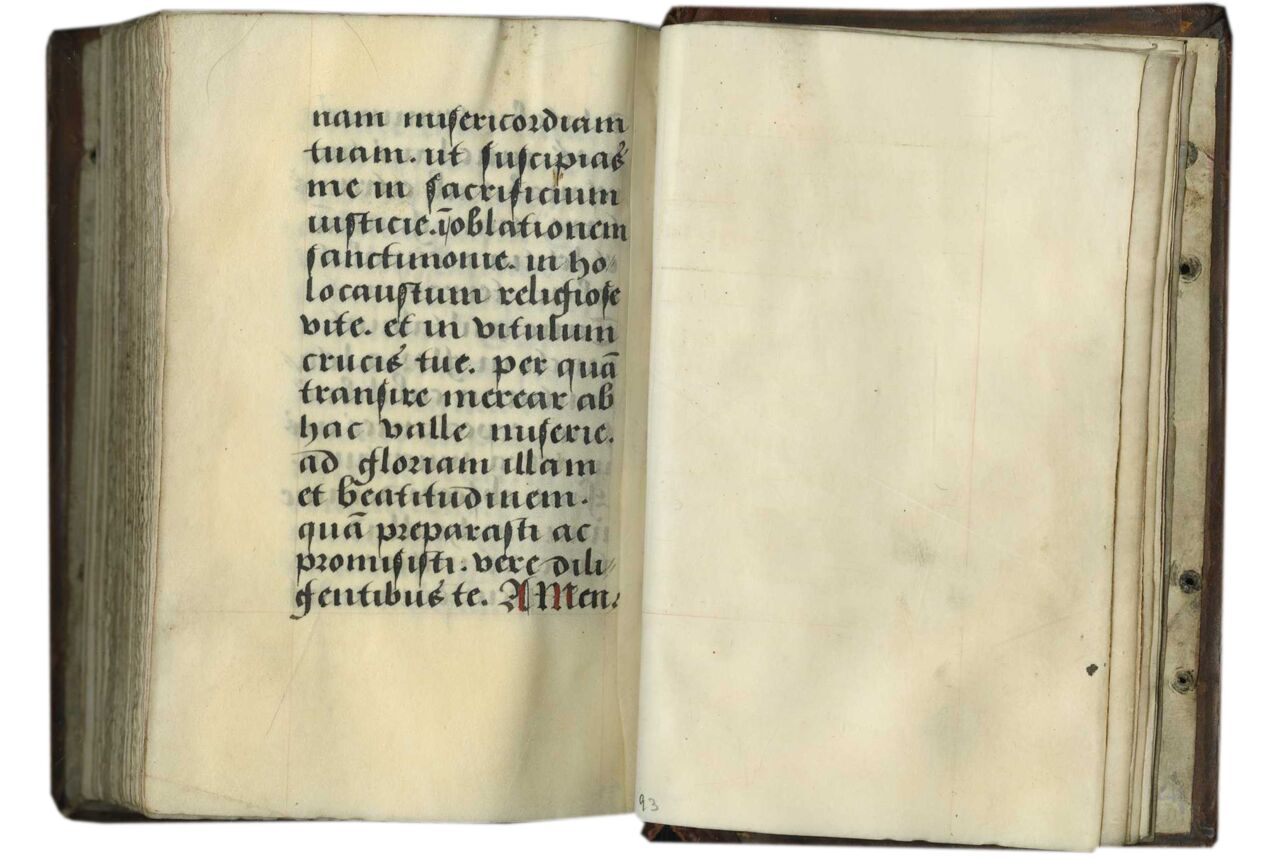 nam misericordiam
tuam. ut suscipias
me in sacrificium
iusticie. ī oblationem
sanctimonie. in ho
locaustum religiose
vite. et in vitulum
crucis tue. per quā
transire merear ab
hac valle miserie.
ad gloriam illam
et beatitudinem.
quā preparasti ac
promisisti. vere dili
gentibus te. AMen.
93